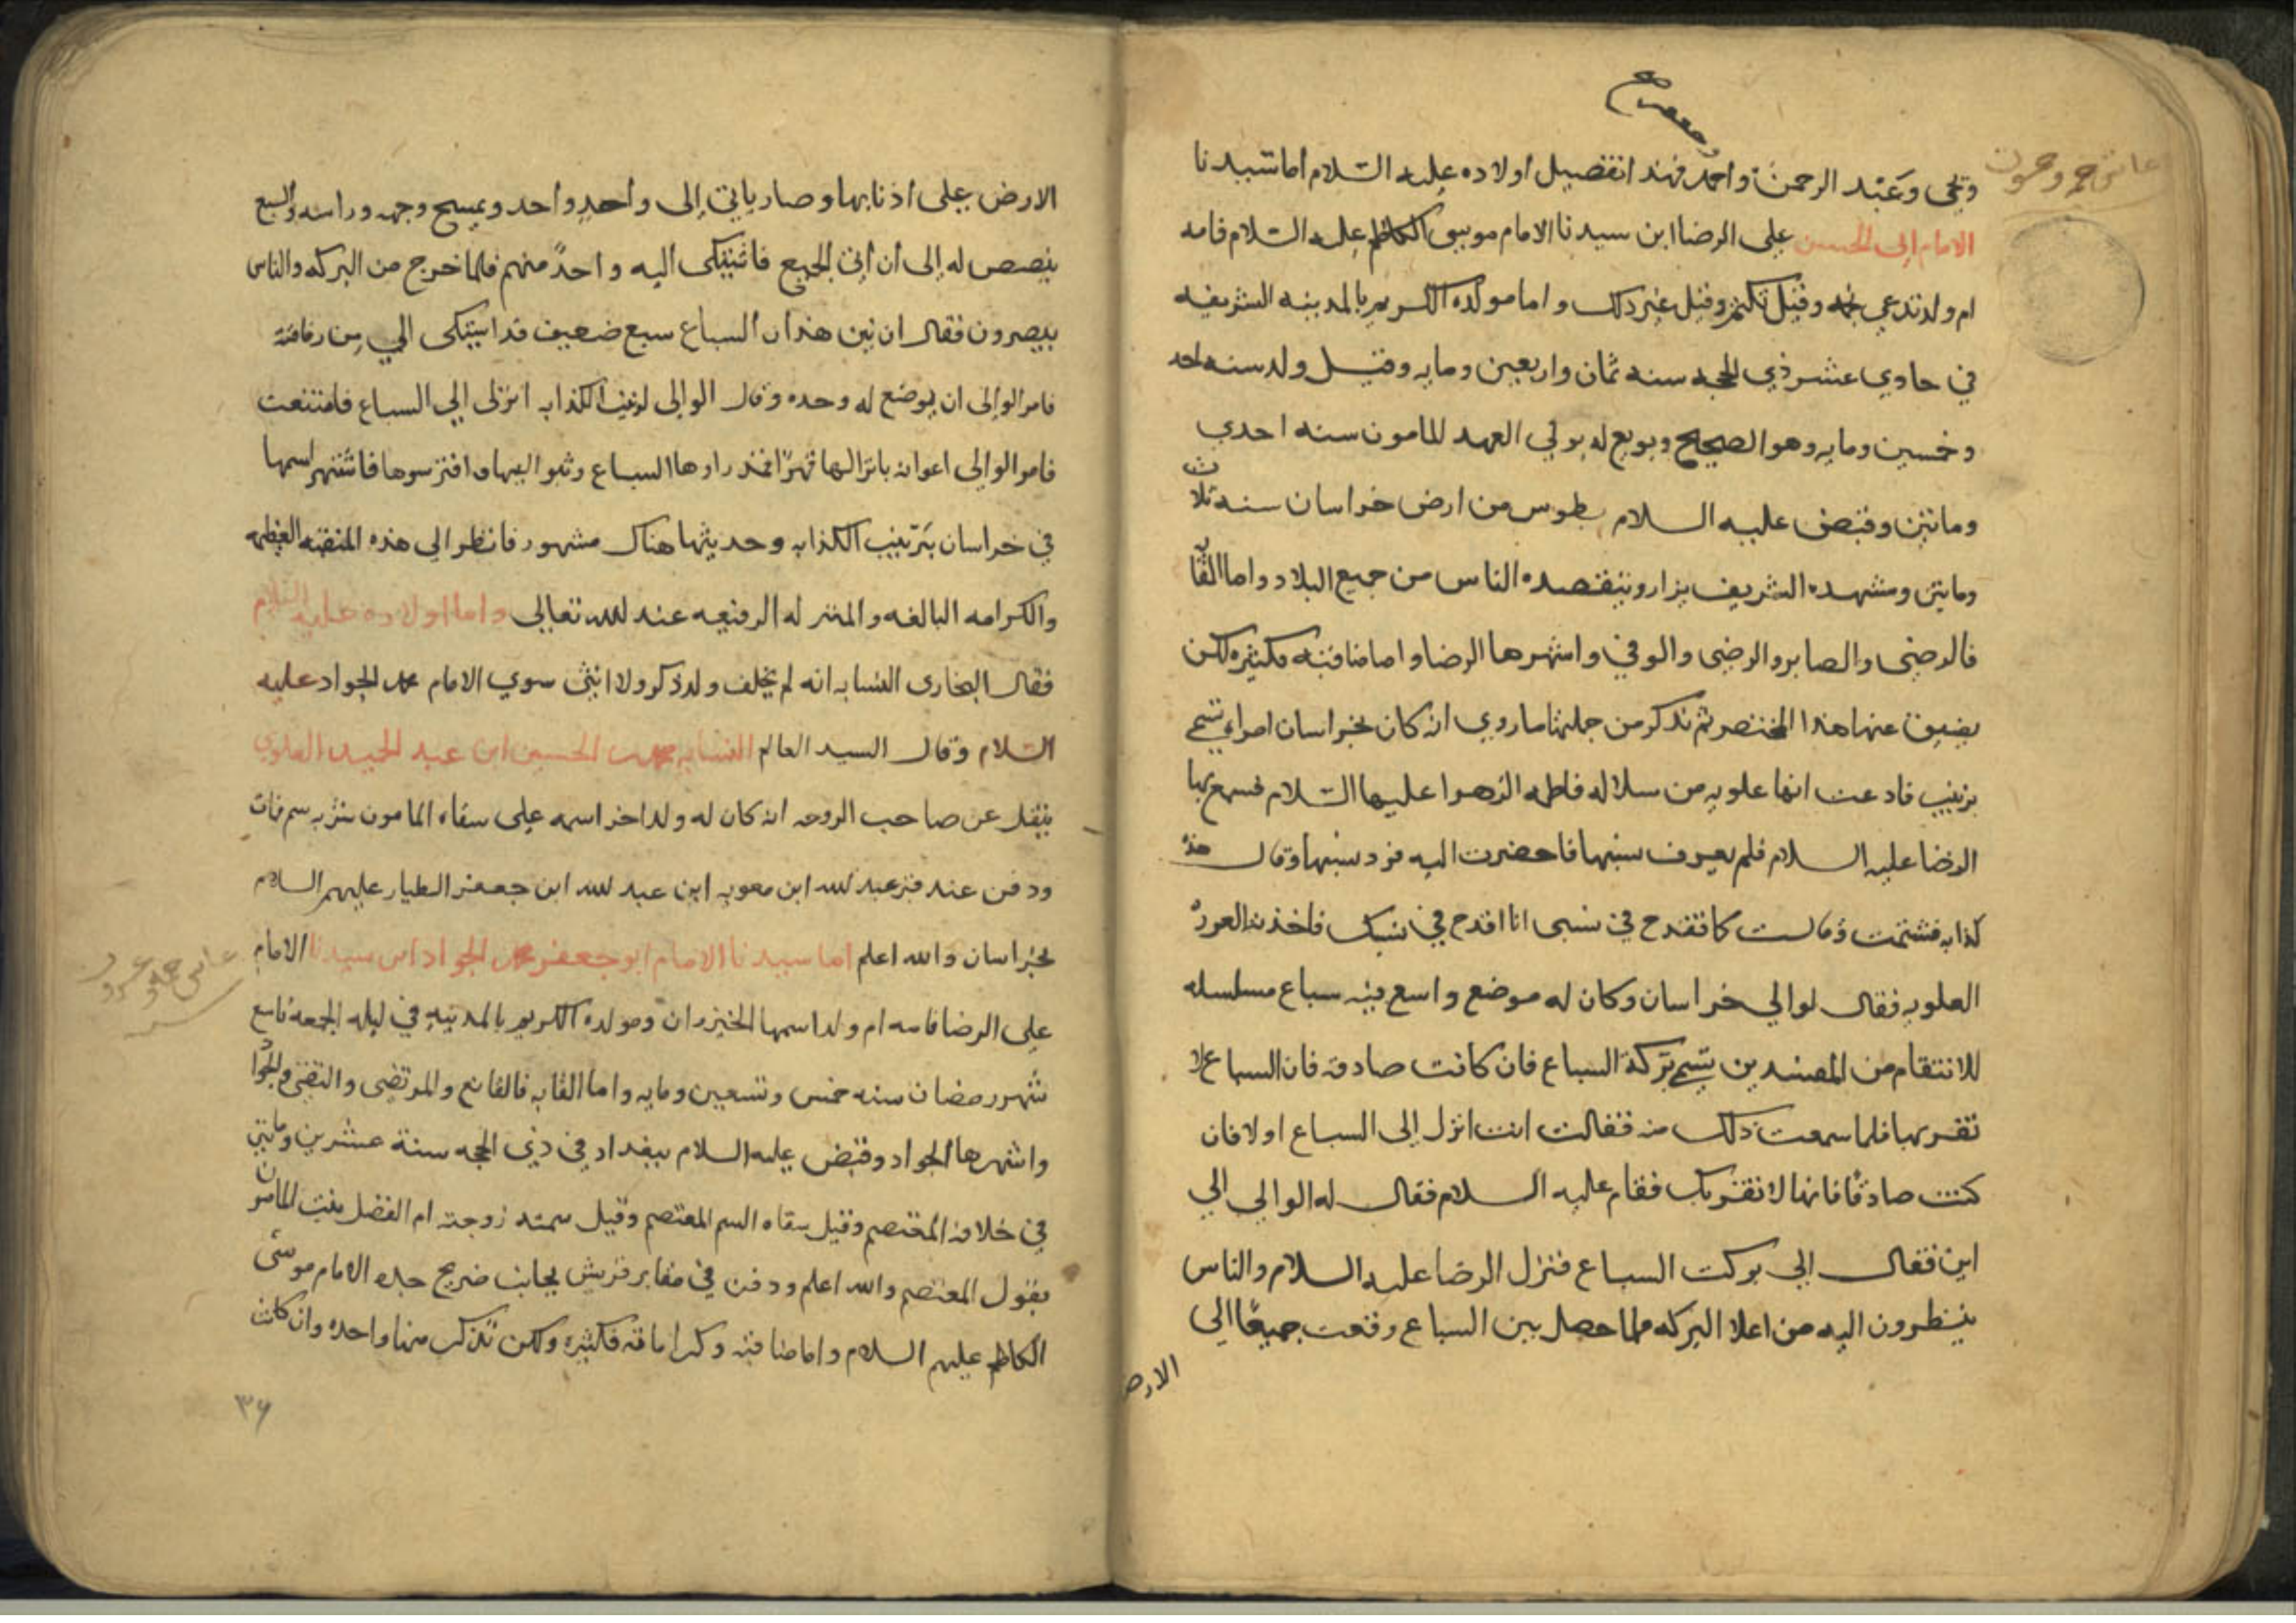 ويحيى وعبد الرحمن واحمد فهذا تفصيل اولاده عليه السلام اما سيدنا
الامام ابي الحسن علي الرضا ابن سيدنا الامام موسى الكاظم عليه السلام فامه
ام ولد تدعي نجمه وقيل تكتم وقيل غير ذلك واما مولده الكريم بالمدينه الشريفه
في حادي عشر ذي الحجه سنه ثمان واربعين ومايه وقيل ولد سنه احد
وخمسين ومايه وهو الصحيح وبويع له بولي العهد للمامون سنه احدي
وماتين وقبض عليه السلام بطوس من ارض خراسان سنه ثلاث
وماتين ومشهده الشريف يزار ويقصده الناس من جميع البلاد واما القابه
فالرضي والصابر والرضي والوفي واشهرها الرضا واما مناقبه فكثيره لكن
يضيق عنها هذا المختصر ثم نذكر من جملتها ما روي ان كان بخراسان امراه تسمى
بزينب فادعت انها علويه من سلاله فاطمه الزهرا عليها السلام فسمع بها
الرضا عليه السلام فلم يعرف نسبها فاحضرت اليه فرد نسبها وقال هذه
كذابه فشتمت وقالت كما تقدح في نسبي انا اقدح في نسبك فاخذته الغيره
العلويه فقال لوالي خراسان وكان له موضع واسع فيه سباع مسلسله
للانتقام من المفسدين يسمى بركة السباع فان كانت صادقه فان السباع لا
تقربها فلما سمعت ذلك منه فقالت انت انزل الى السباع اولا فان
كنت صادقا فانها لا تقربك فقام عليه السلام فقال له الوالي الي
اين فقال الي بركت السباع فنزل الرضا عليه السلام والناس
ينظرون اليه من اعلا البركه فلما حصل بين السباع وقعت جميعا الي
الارض
الارض على اذنابها وصار ياتي إلى واحد واحد ويمسح وجهه وراسه والسبع
يبصبص له إلى أن أتى الجميع فاشتكى اليه واحد منهم فلما خرج من البركه والناس
يبصرون فقال ان بين هذه السباع سبع ضعيف قد اشتكى الي من رفاقته
فامر الوالى ان يوضع له وحده وقال الوالى لزينب الكذابه انزلى الي السباع فامتنعت
فامر الوالى اعوانه بانزالها قهرا فمذ راوها السباع وثبوا اليها وافترسوها فاشتهر اسمها
في خراسان بزينب الكذابه وحديثها هناك مشهور فانظر الى هذه المنقبه العظيمه
والكرامه البالغه والمنزله الرفيعه عند الله تعالى واما اولاده عليه السلام
فقال البخارى النسابه انه لم يخلف ولد ذكر ولا انثى سوي الامام محمد الجواد عليه
السلام وقال السيد العالم النسابه محمد بن الحسين ابن عبد الحميد العلوي
ينقل عن صاحب الروحه انه كان له ولدا اخر اسمه علي سقاه المامون شربه سم فمات
ودفن عند قبر عبد الله ابن معويه ابن عبد الله ابن جعفر الطيار عليهم السلام
بخراسان والله اعلم اما سيدنا الامام ابو جعفر محمد الجواد ابن سيدنا الامام
علي الرضا فامه ام ولد اسمها الخيزران ومولده الكريم بالمدينه في ليله الجمعه تاسع
شهر رمضان سنه خمس وتسعين ومايه واما القابه فالقانع والمرتضى والتقي والجواد
واشهرها الجواد وقبض عليه السلام ببغداد في ذي الحجه سنة عشرين وماتين
في خلافة المعتصم وقيل سقاه السم المعتصم وقيل سمته زوجته ام الفضل بنت المامون
بقول المعتصم والله اعلم ودفن في مقابر قريش بجانب ضريح جده الامام موسى
الكاظم عليهم السلام واما مناقبه وكراماته فكثيره ولكن نذكر منها واحده وان كانت
٣٦